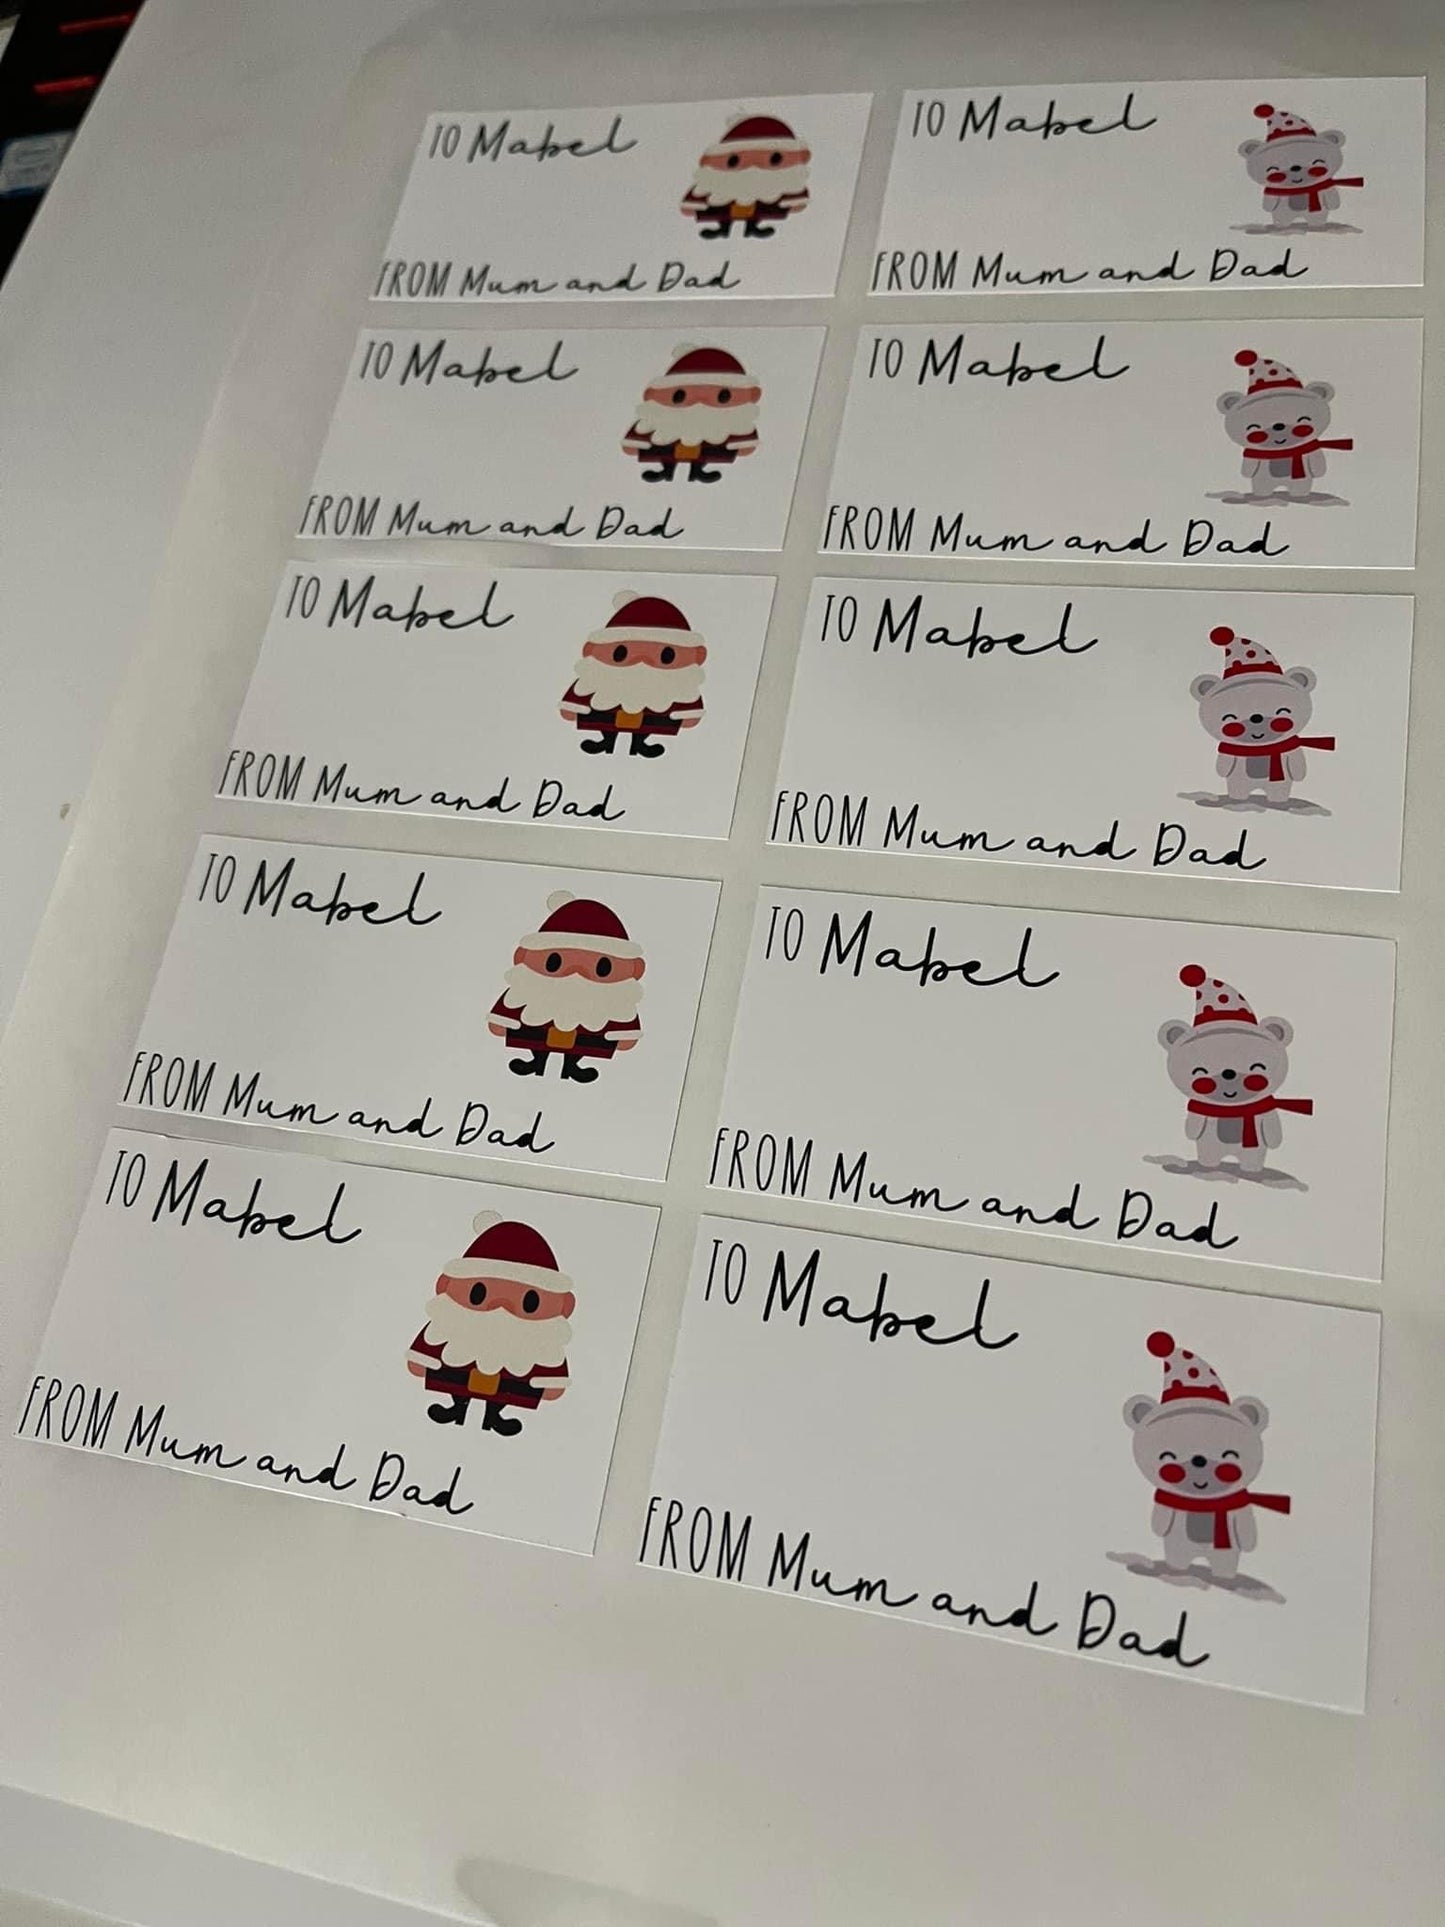 TO Mabel
FROM Mum and Dad
TO Mabel
FROM Mum and Dad
TO Mabel
FROM Mum and Dad
TO Mabel
FROM Mum and Dad
TO Mabel
FROM Mum and Dad
TO Mabel
FROM Mum and Dad
TO Mabel
FROM Mum and Dad
TO Mabel
FROM Mum and Dad
TO Mabel
FROM Mum and Dad
TO Mabel
FROM Mum and Dad